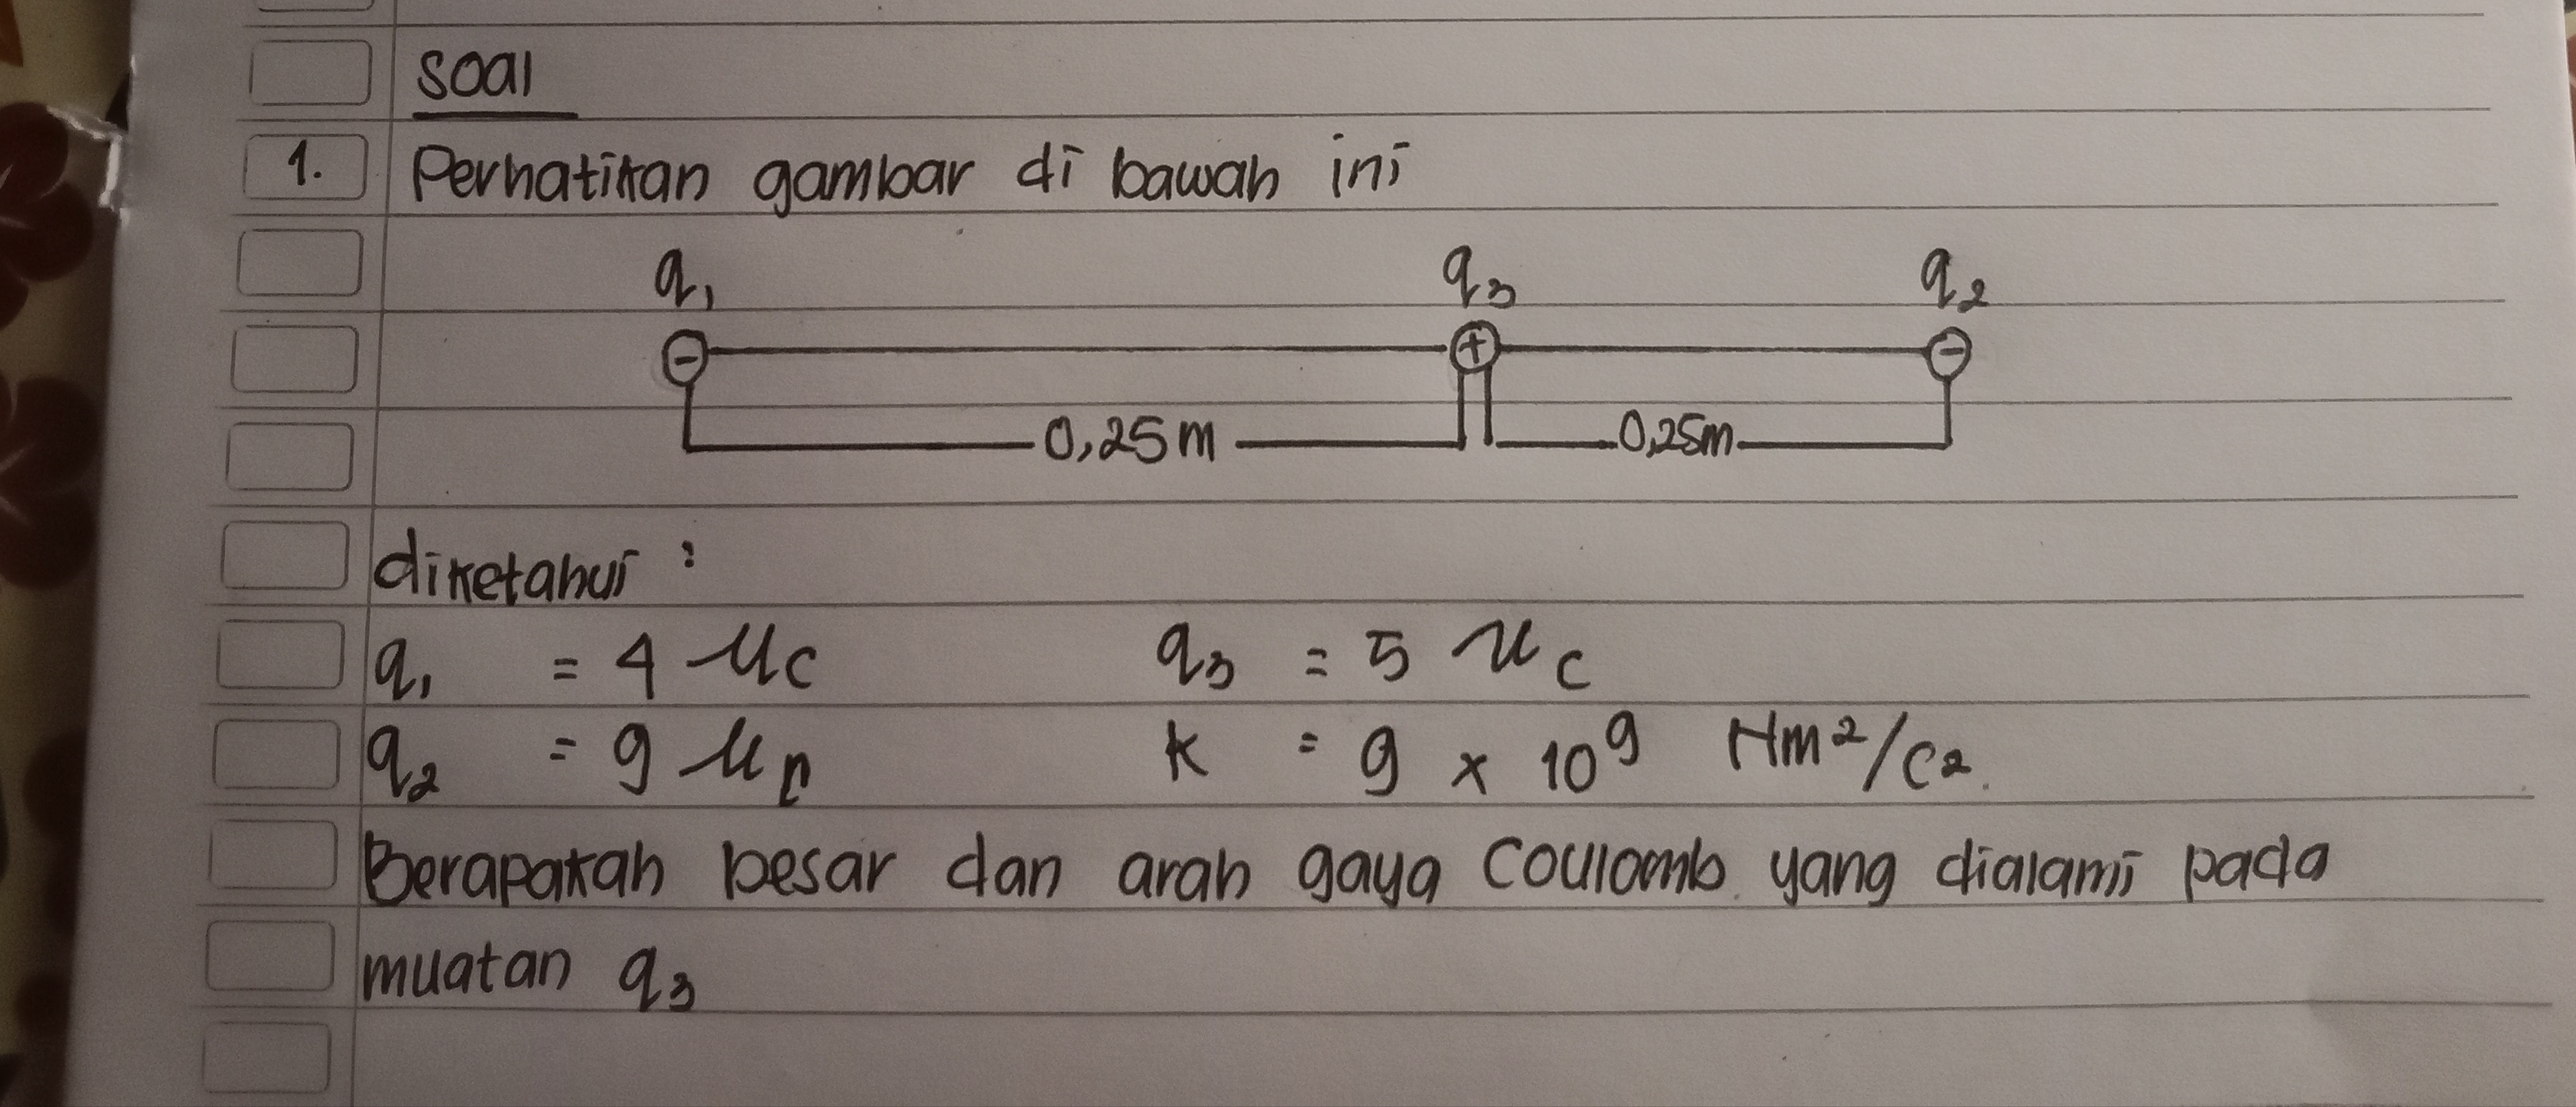 soal
1. Perhatikan gambar di bawah ini
q₁ q₃ q₂
- + -
0,25 m 0,25m
diketahui :
q₁ = 4 μc q₃ = 5 μc
q₂ = 9 μc k = 9 x 10⁹ Nm²/c²
Berapakah besar dan arah gaya Coulomb yang dialami pada
muatan q₃